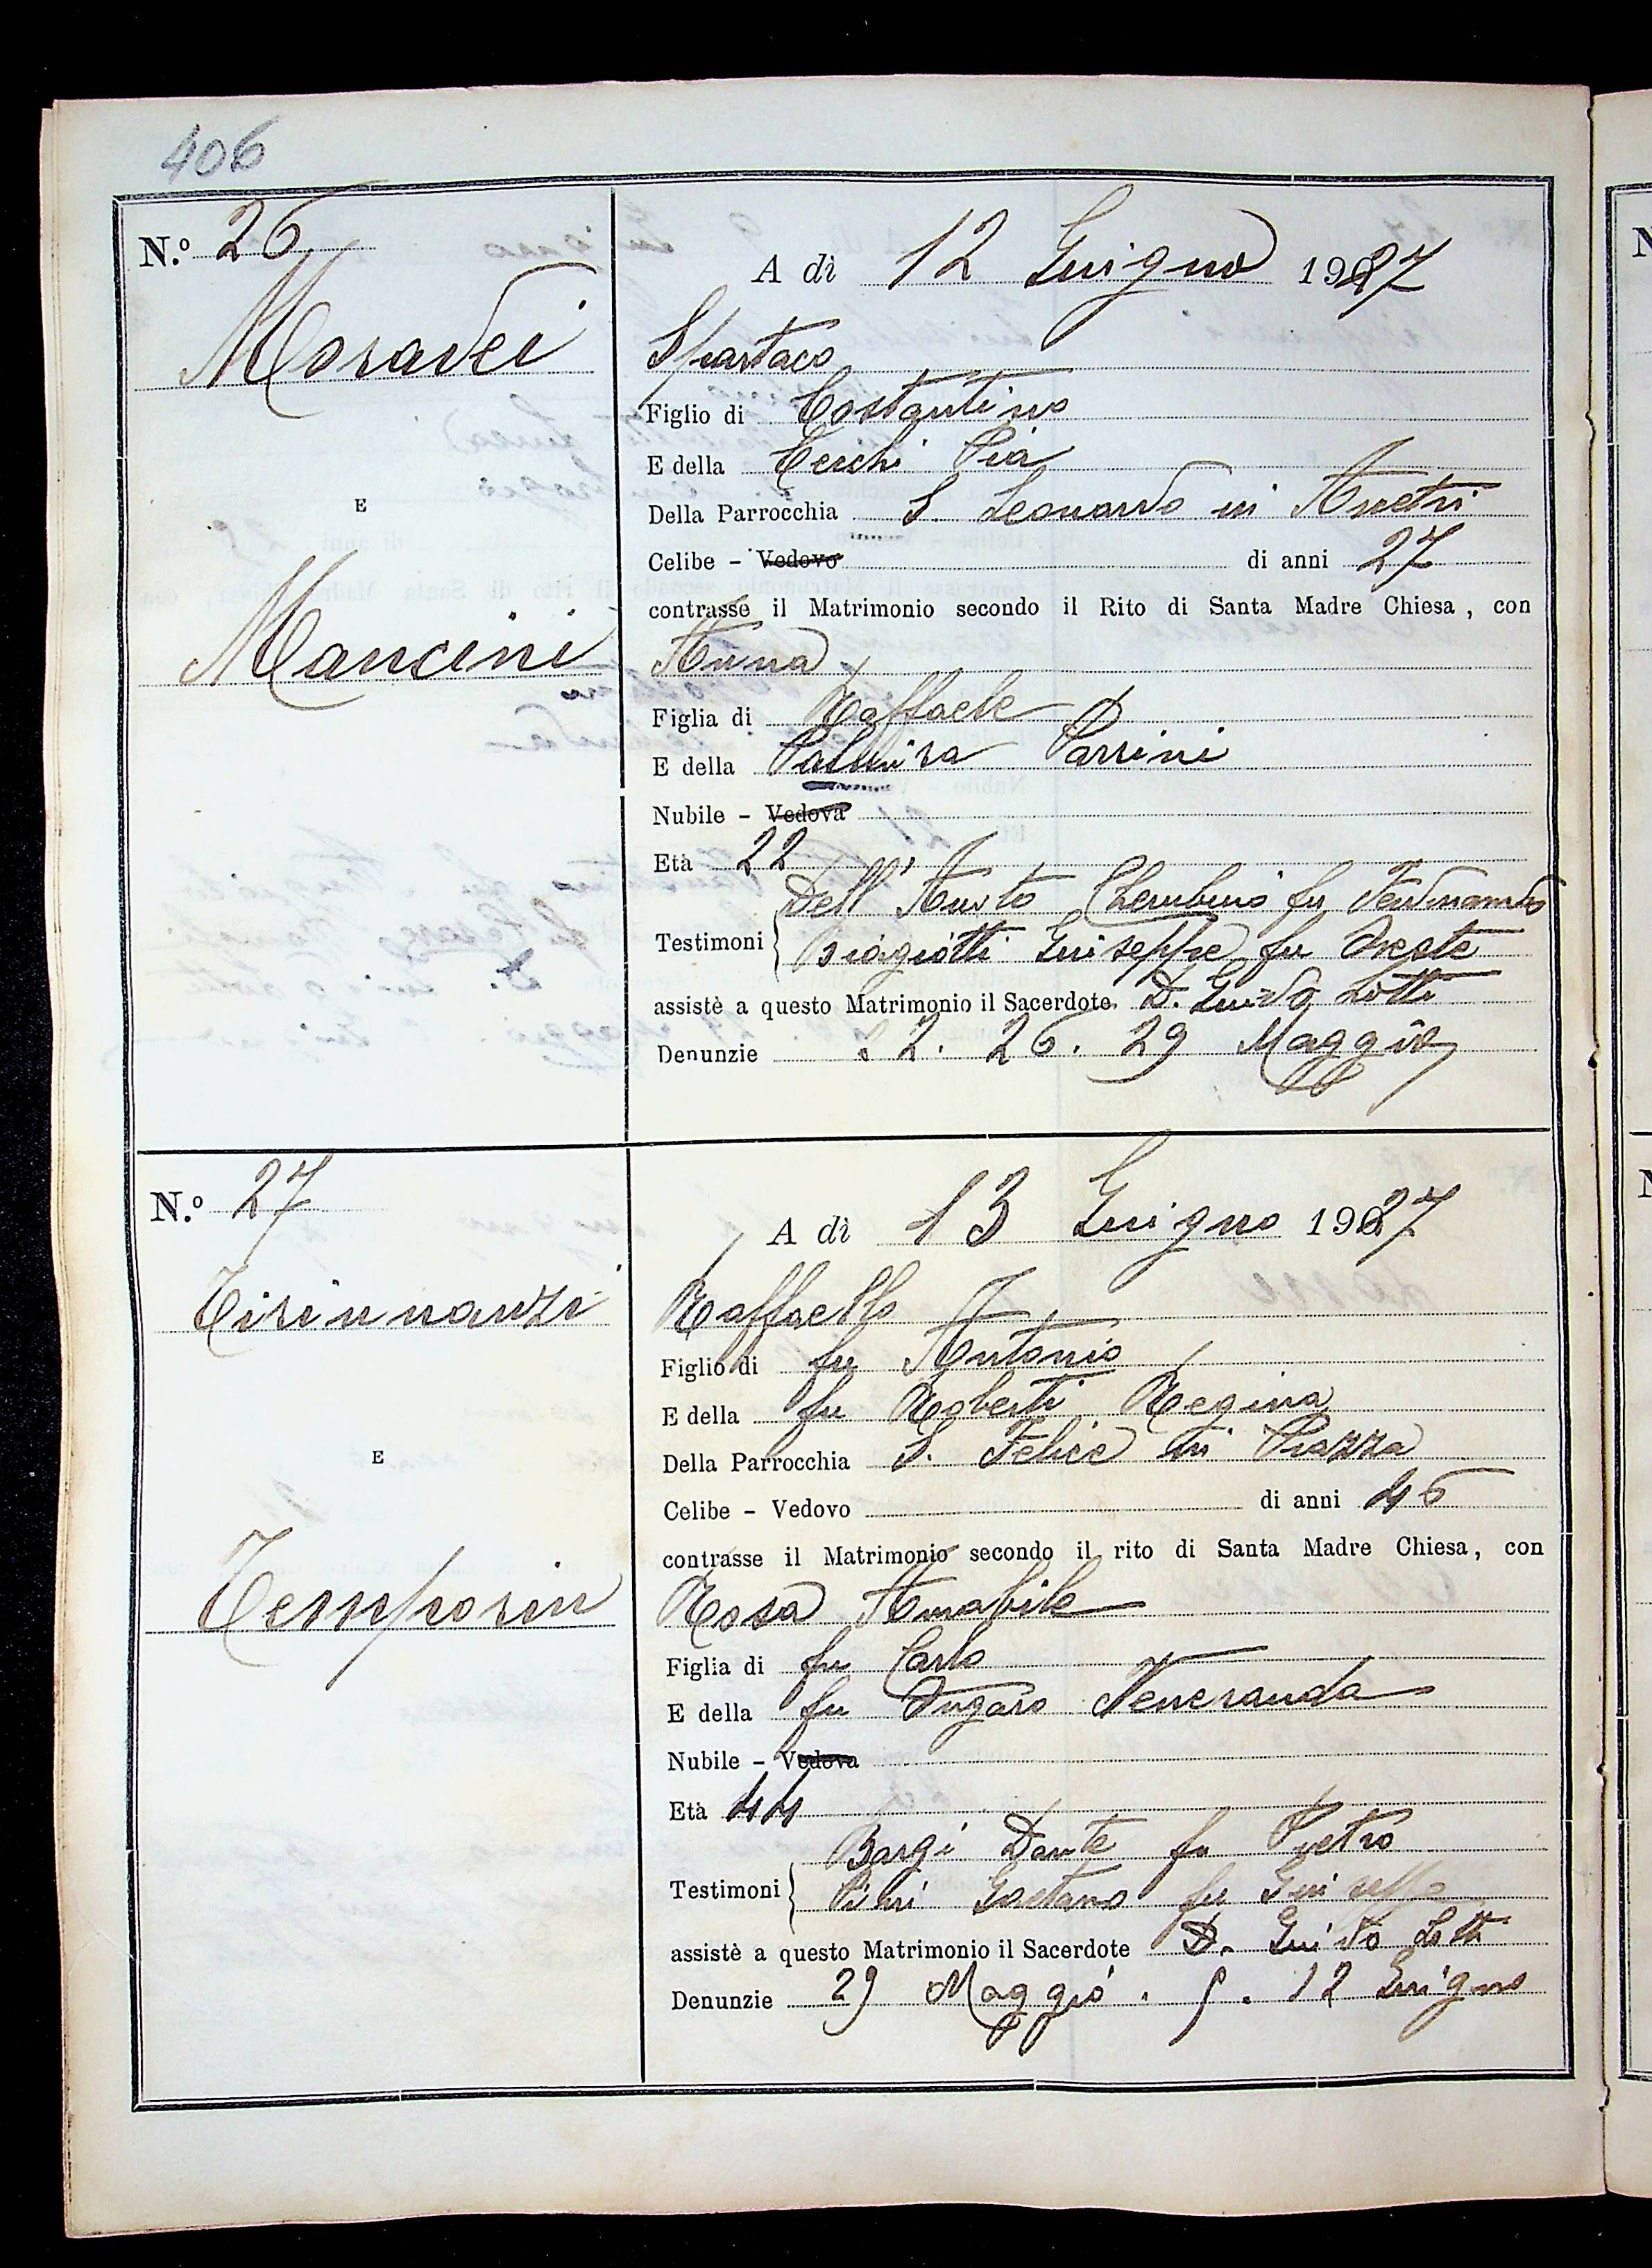 406
N.º 26
A dì 12 Giugno 1927
Moradei
Spartaco
Figlio di Costantino
E della Cecchi Pia
E
Della Parrocchia S. Leonardo in Arcetri
Celibe - Vedovo di anni 27
contrasse il Matrimonio secondo il Rito di Santa Madre Chiesa, con
Mancini
Anna
Figlia di Raffaele
E della Palmira Parrini
Nubile - Vedova
Età 22
Dell' Cherubino fu Ferdinando
Testimoni Biagiotti Giuseppe fu Oreste
assistè a questo Matrimonio il Sacerdote D. Guido Lotti
Denunzie 26. 29 Maggio
N.º 27
A dì 13 Giugno 1927
Tirinnanzi
Raffaello
Figlio di fu Antonio
E della fu Roberti Regina
E
Della Parrocchia S. Felice in Piazza
Celibe - Vedovo di anni 46
contrasse il Matrimonio secondo il rito di Santa Madre Chiesa, con
Temporin
Rosa Amabile
Figlia di fu Carlo
E della fu Ongaro Veneranda
Nubile - Vedova
Età 44
Bargi Dante fu Pietro
Testimoni Gaetano fu Giuseppe
assistè a questo Matrimonio il Sacerdote D. Guido Lotti
Denunzie 29 Maggio. 5. 12 Giugno